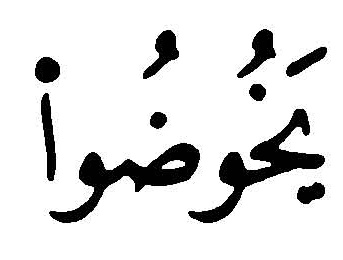 يَخُوضُوا۟